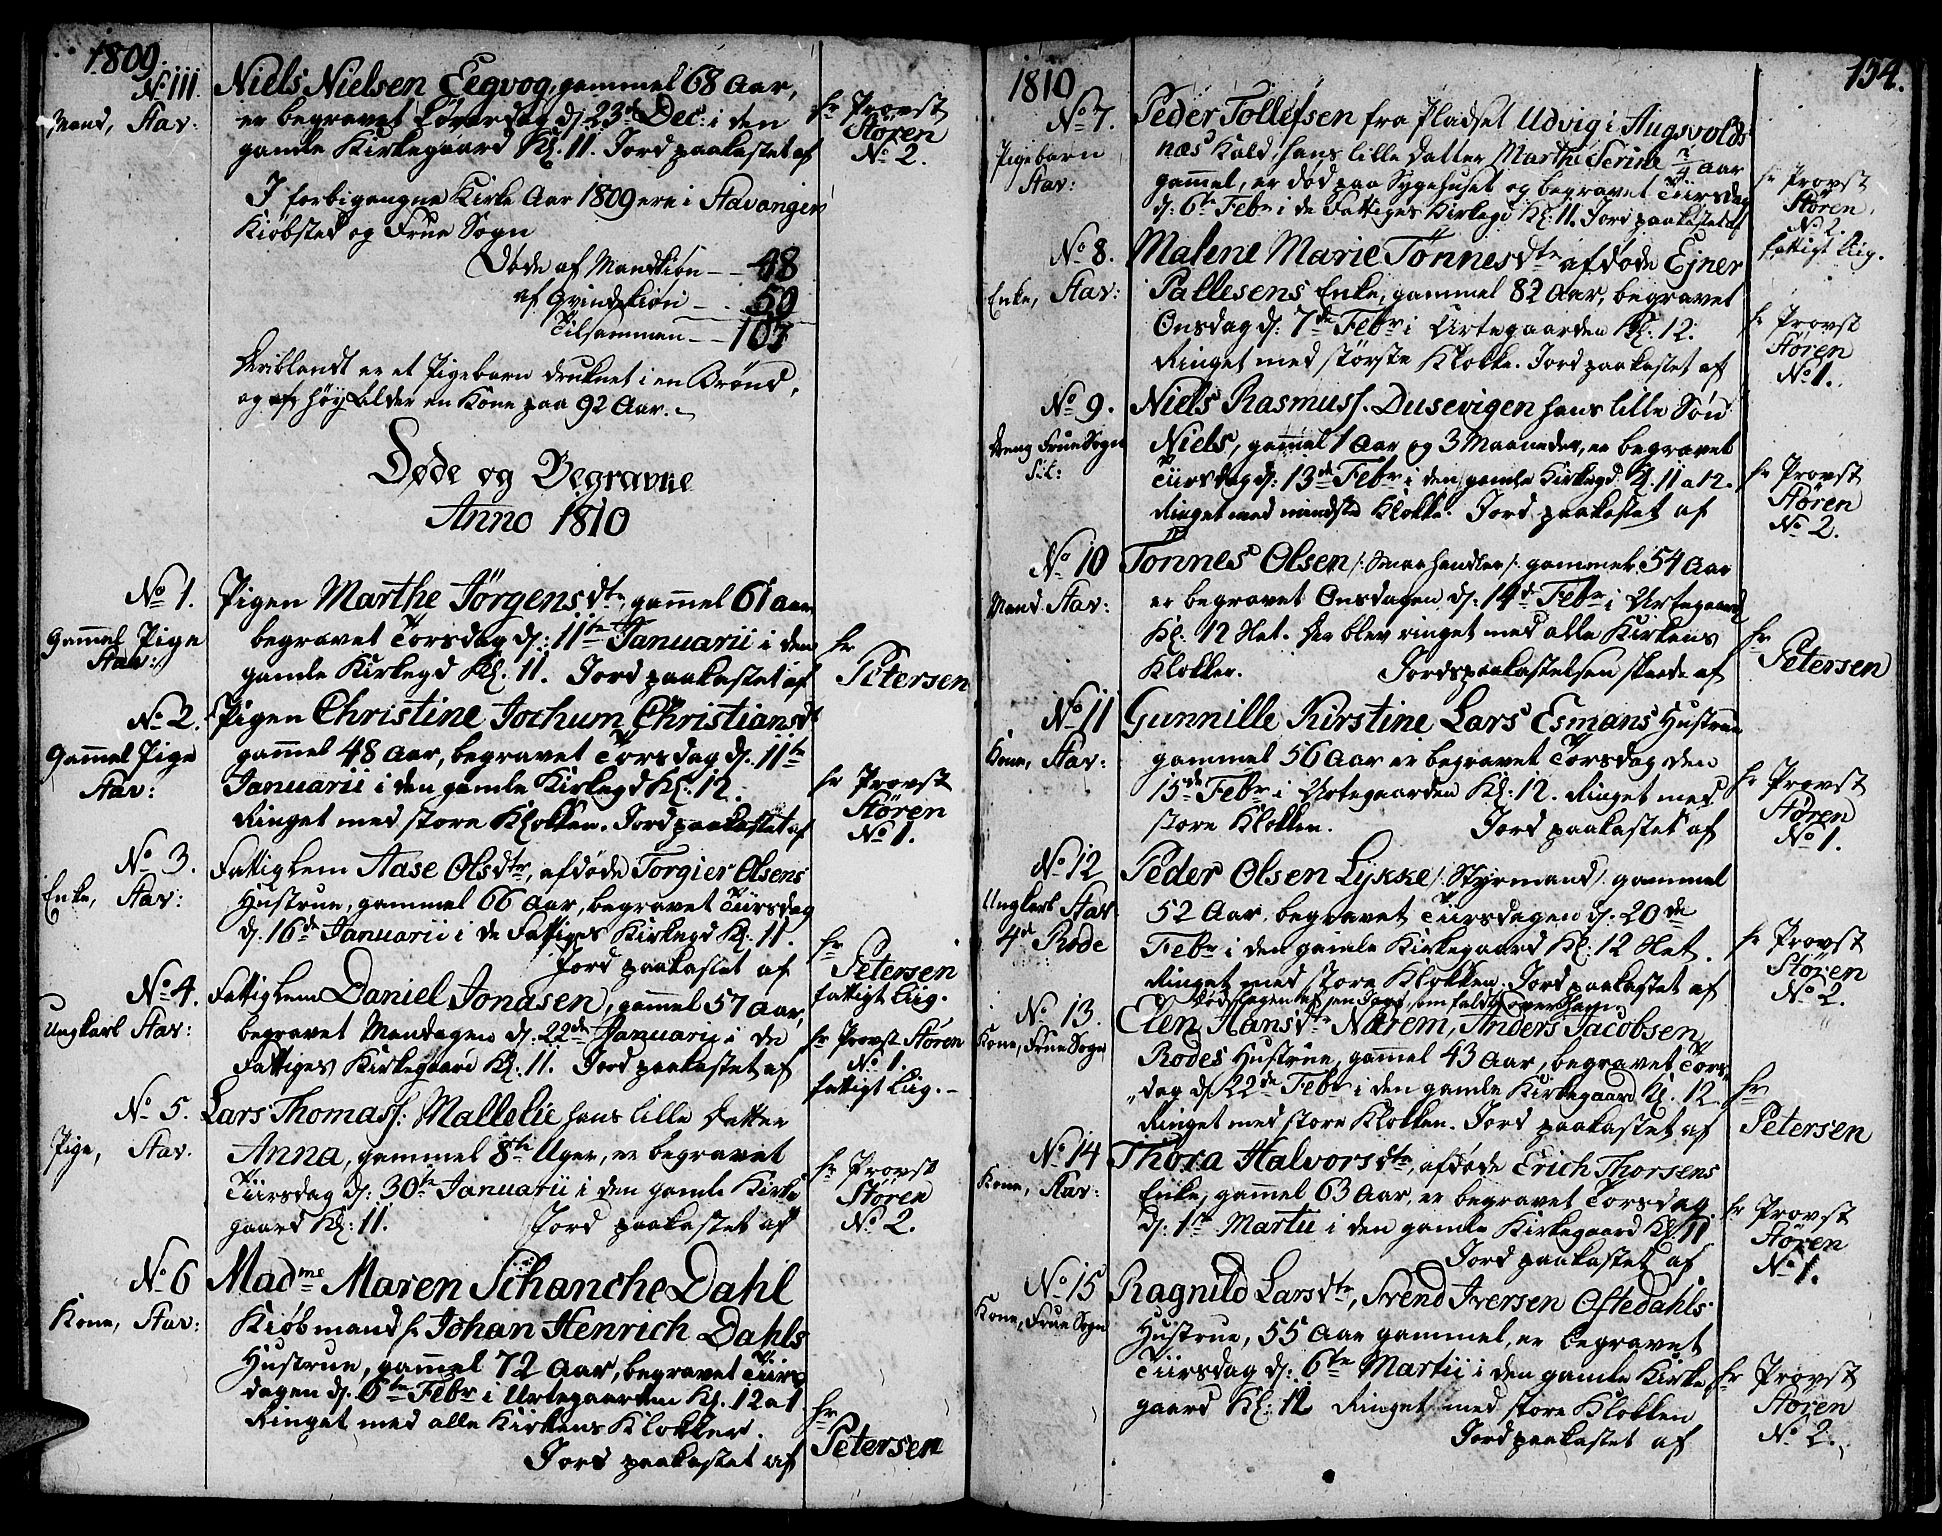 1809.
No 111. Niels Nielsen Eegvog, gammel 68 Aar,
Mand, Stav: er begravet Løverdag d: 23de Dec: i den
gamle Kirkegaard Kl. 11. Jord paakastet af
hr Provst
Stören
No 2.
I forbigangne Kirke Aar 1809 ere i Stavanger
Kiøbsted og Frue Sogn
Døde af Mandkiøn - - 48
af Qvindekiøn - -
Tilsammen - - 107
Deriblandt er et Pigebarn druknet i en Brønd,
og af høy Alder en Kone paa 92 Aar.
Døde og Begravne
Anno 1810
No 1. Pigen Marthe Jörgensdtr, gammel 61 aar
Gammel Pige begravet Torsdag d: 11te Januarii i den
Stav: gamle Kirkegd Kl. 11. Jord paakastet af
hr
Petersen
No 2. Pigen Christine Jochum Christiansdt
Gammel Pige gammel 48 Aar, begravet Torsdag d. 11te
Stav: Januarii i den gamle Kirkegd Kl: 12.
Ringet med store Klokken. Jord paakastet af
hr Provst
Stören
No 1.
No 3. Fattiglem Aase Olsdtr, afdøde Torgier Olsens
Enke, Stav: Hustrue, gammel 66 Aar, begravet Tiirsdag
d. 16de Januarii i de Fattiges Kirkegd Kl. 11.
Jord paakastet af
hr
Petersen
fattigt Liig.
No 4. Fattiglem Daniel Jonasen, gammel 57 Aar,
Ungkarl Stav: begravet Mandagen d. 22de Januarii i de
Fattiges Kirkegaard Kl. 11. Jord paakastet af
hr Provst Stören
No 1.
fattigt Liig. -
No 5. Lars Thomass: Mallelie hans lille Datter
Pige, Stav. Anna, gammel 8te Uger, er begravet
Tiirsdag d: 30te Januarii i den gamle Kirke
gaard Kl: 11. Jord paakastet af
hr Provst
Stören
No 2.
No 6 Madme Maren Schanche Dahl
Kone, Stav: Kiøbmand hr Johan Henrich Dahls
Hustrue, gammel 72 Aar, begravet Tiirs
dagen d. 6te Febr i Urtegaarden Kl. 12 a 1.
Ringet med alle Kirkens Klokker.
Jord paakastet af
hr
Petersen
1810
154.
No 7. Peder Tollefsen fra Pladset Udvig i Augsvolds
Pigebarn næs Kald, hans lille Datter Marthe Serine 7/4 Aar
Stav: gammel, er død paa Sygehuset og begravet Tiirsdag
d: 6te Febr i de Fattiges Kirkegd Kl: 11. Jord paakastet af
hr Provst
Stören.
No 2.
fattigt Liig.
No 8. Malene Marie Tönnesdtr afdøde Ejner
Enke, Stav: Pallesens Enke, gammel 82 Aar, begravet
Onsdag d: 7de Febr i Urtegaarden Kl: 12.
Ringet med største Klokke. Jord paakastet af
hr Provst
Stören
No 1.
No 9. Niels Rasmuss. Dusevigen hans lille Søn
Dreng Frue Sogn Niels, gammel 1 Aar og 3 Maaneder, er begravet
Tiirsdag d: 13de Febr i den gamle Kirkegd Kl. 11 a 12.
Ringet med mindste Klokke. Jord paakastet af
hr Provst
Stören
No 2.
No 10 Tönnes Olsen /: Smaahandler /: gammel 54 Aar
Mand Stav: er begravet Onsdagen d: 14de Febr i Urtegaard
Kl: 12 Slet. Der blev ringet med alle Kirkens
Klokker. Jordspaakastelsen skeede af
hr
Petersen
No 11 Gunnille Kirstine Lars Esmans Hustrue
Kone, Stav: gammel 56 Aar er begravet Torsdag den
15de Febr i Urtegaarden Kl: 12. Ringet med
store Klokken. Jord paakastet af
hr Provst
Stören
No 1.
No 12 Peder Olsen Lykke /: Styrmand /: gammel
Ungkarl Stav 52 Aar, begravet Tiirsdagen d: 20de
4de Rode Febr i den gamle Kirkegaard Kl: 12 Slet.
Ringet med store Klokken. Jord paakastet af
hr Provst
Stören
No 2.
No 13. Elen Hansdtr Nærem, Anders Jacobsen
Kone, Frue Sogn Rodes Hustrue, gammel 43 Aar, begravet Tors,,
,,dag d: 22de Febr i den gamle Kirkegaard Kl. 12.
Ringet med store Klokken. Jord paakastet af
hr
Petersen
No 14 Thora Halvorsdtr, afdøde Erich Thorsens
Kone, Stav: Enke, gammel 63 Aar, er begravet Torsdag
d: 1te Martii i den gamle Kirkegaard Kl. 11
Jord paakastet af
hr Provst
Stören
No 1.
No 15 Ragnild Larsdtr, Svend Iversen Oftedahls
Kone, Frue Sogn Hustrue, 55 Aar gammel, er begravet
Tiirsdag d: 6te Martii i den gamle Kirke,,
gaard Kl: 12 Ringet med store Klokken
Jord paakastet af
hr Provst
Stören
No 2.